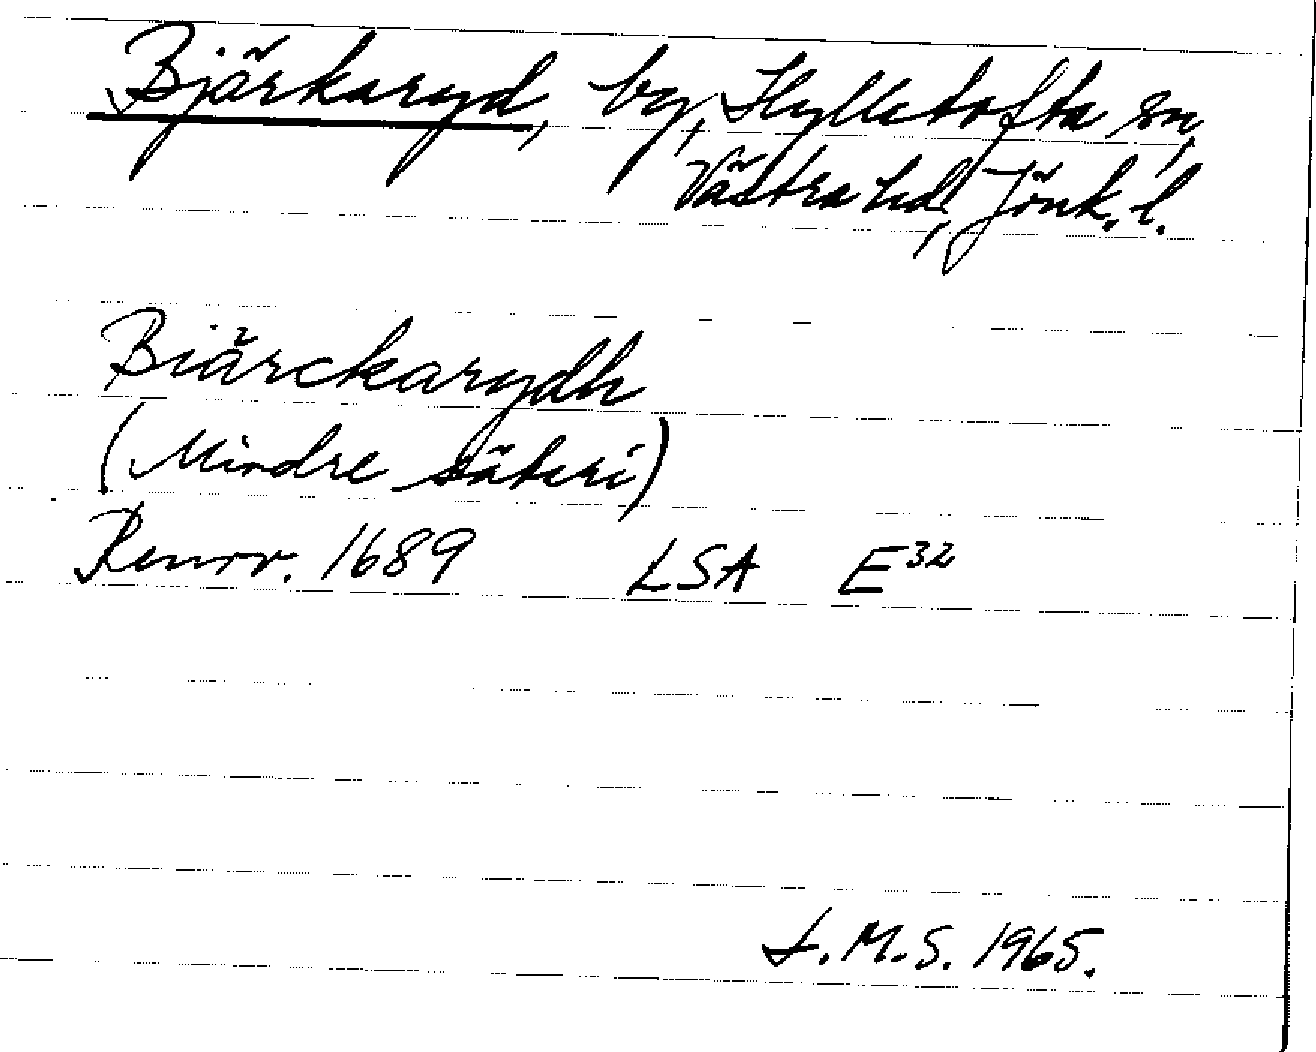 Bjärkaryd, by, Hylletofta sn,
Västra hd, Jönk. l.
Biärckarydh
(Mindre säteri)
Renov. 1689 LSA E³²
L.M.S. 1965.